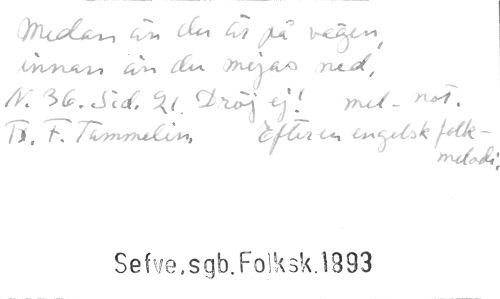 Medan än du är på vägen,
innan än du mejas ned,
N. 36. Sid. 21. Dröj ej! mel-not.
Tr. F. Tammelin. Efter en engelsk folk-
melodi.
Sefve,sgb.Folksk.1893